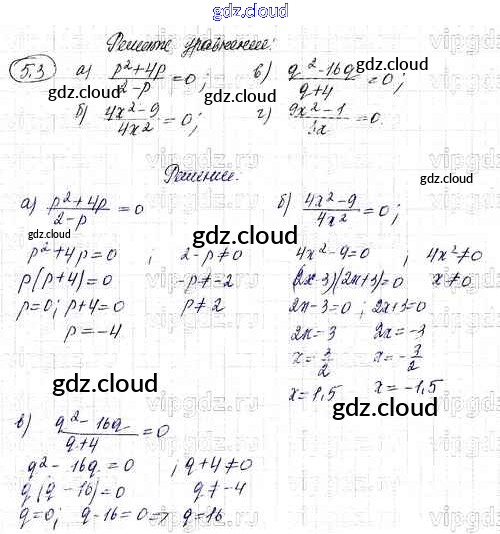 gdz.cloud
Решите уравнение:
5.3 а) (p²+4p)/(2-p) = 0; в) (q²-16q)/(q+4) = 0;
gdz.cloud gdz.cloud
б) (4x²-9)/(4x²) = 0; г) (9x²-1)/(3x) = 0.
gdz.cloud gdz.cloud
Решение.
gdz.cloud
а) (p²+4p)/(2-p) = 0 б) (4x²-9)/(4x²) = 0;
gdz.cloud gdz.cloud
p²+4p=0 ; 2-p≠0 4x²-9=0 ; 4x²≠0
p(p+4)=0 -p≠-2 (2x-3)(2x+3)=0 x≠0
p=0; p+4=0 p≠2 2x-3=0 ; 2x+3=0
p=-4 2x=3 2x=-3
x=3/2 x=-3/2
gdz.cloud gdz.cloud
x=1,5 x=-1,5
gdz.cloud
в) (q²-16q)/(q+4) = 0
q²-16q=0 ; q+4≠0
q(q-16)=0 q≠-4
q=0; q-16=0 => q=16
gdz.cloud gdz.cloud
vipgdz.ru